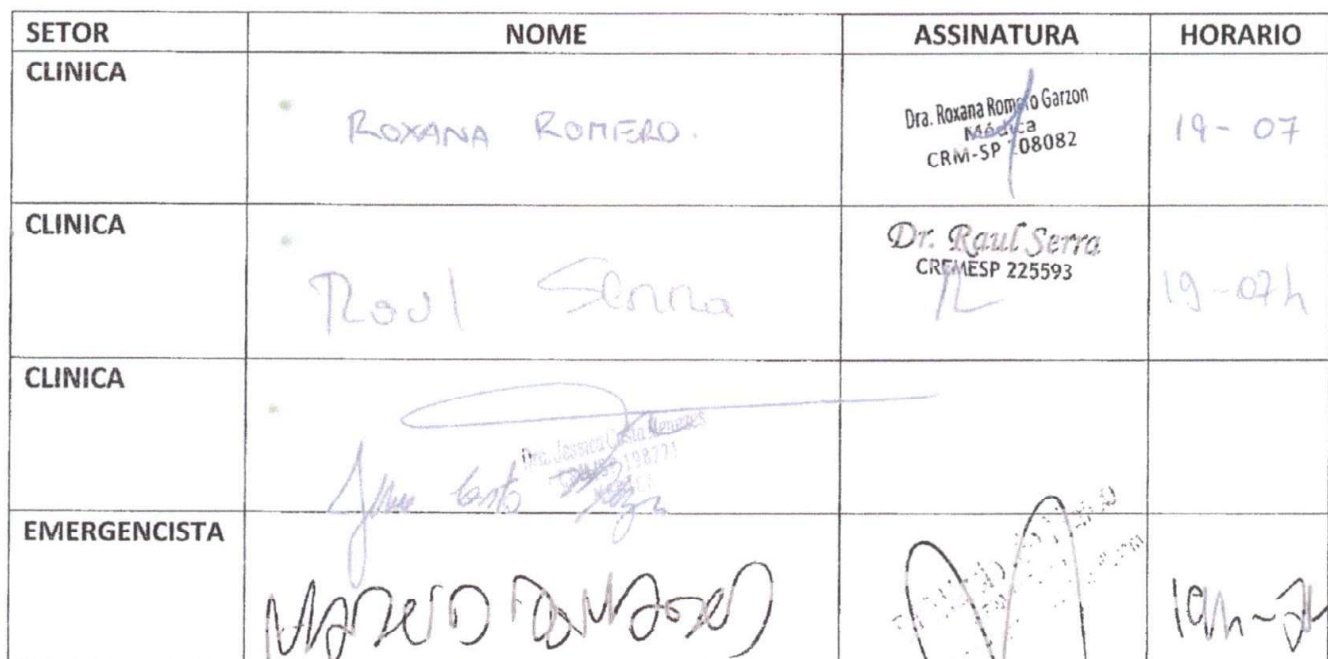 SETOR NOME ASSINATURA HORARIO
CLINICA
ROXANA ROMERO.
Dra. Roxana Romero Garzon
Médica
CRM-SP 208082
19- 07
CLINICA
Raul Serra
Dr. Raul Serra
CREMESP 225593
19-07h
CLINICA
Dra. Jessica Costa Menezes
198771
EMERGENCISTA
19h-7h